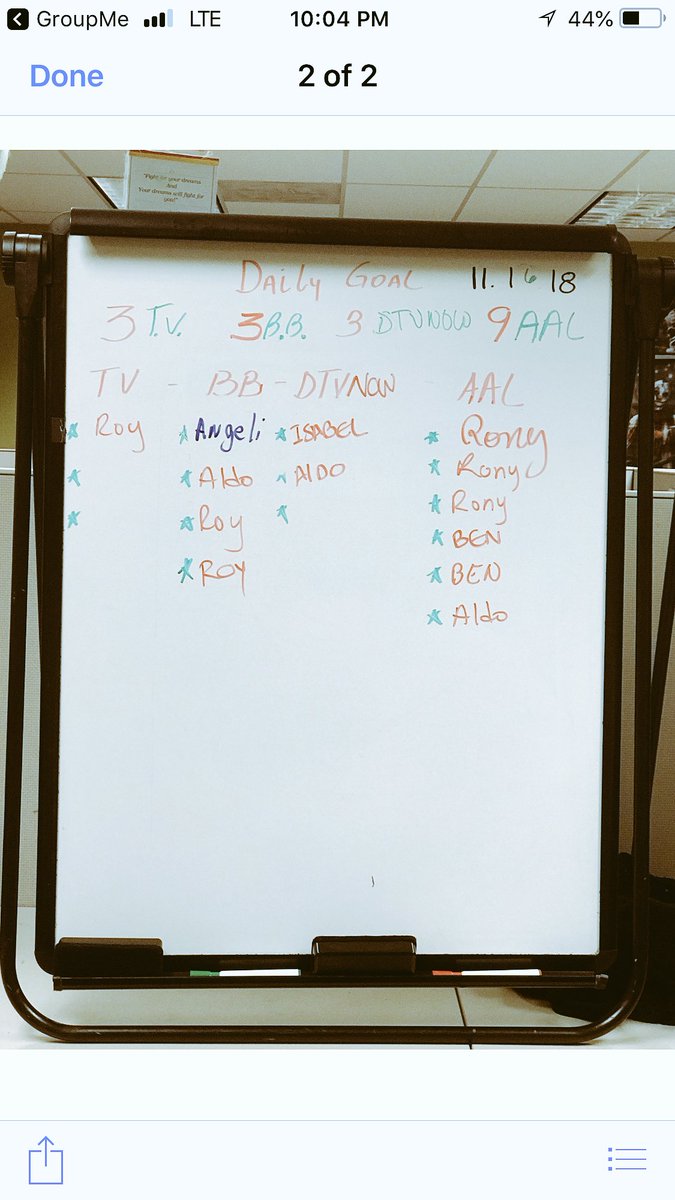 GroupMe LTE 10:04 PM 44%
Done 2 of 2
"Fight for your dreams
And
Your dreams will fight for
you!"
Daily Goal 11.16 18
3 T.V. 3 B.B. 3 DTVNOW 9 AAL
TV - BB - DTVNOW AAL
Roy Angeli ISABEL Rony
Aldo AlDO Rony
Roy Rony
ROY BEN
BEN
Aldo